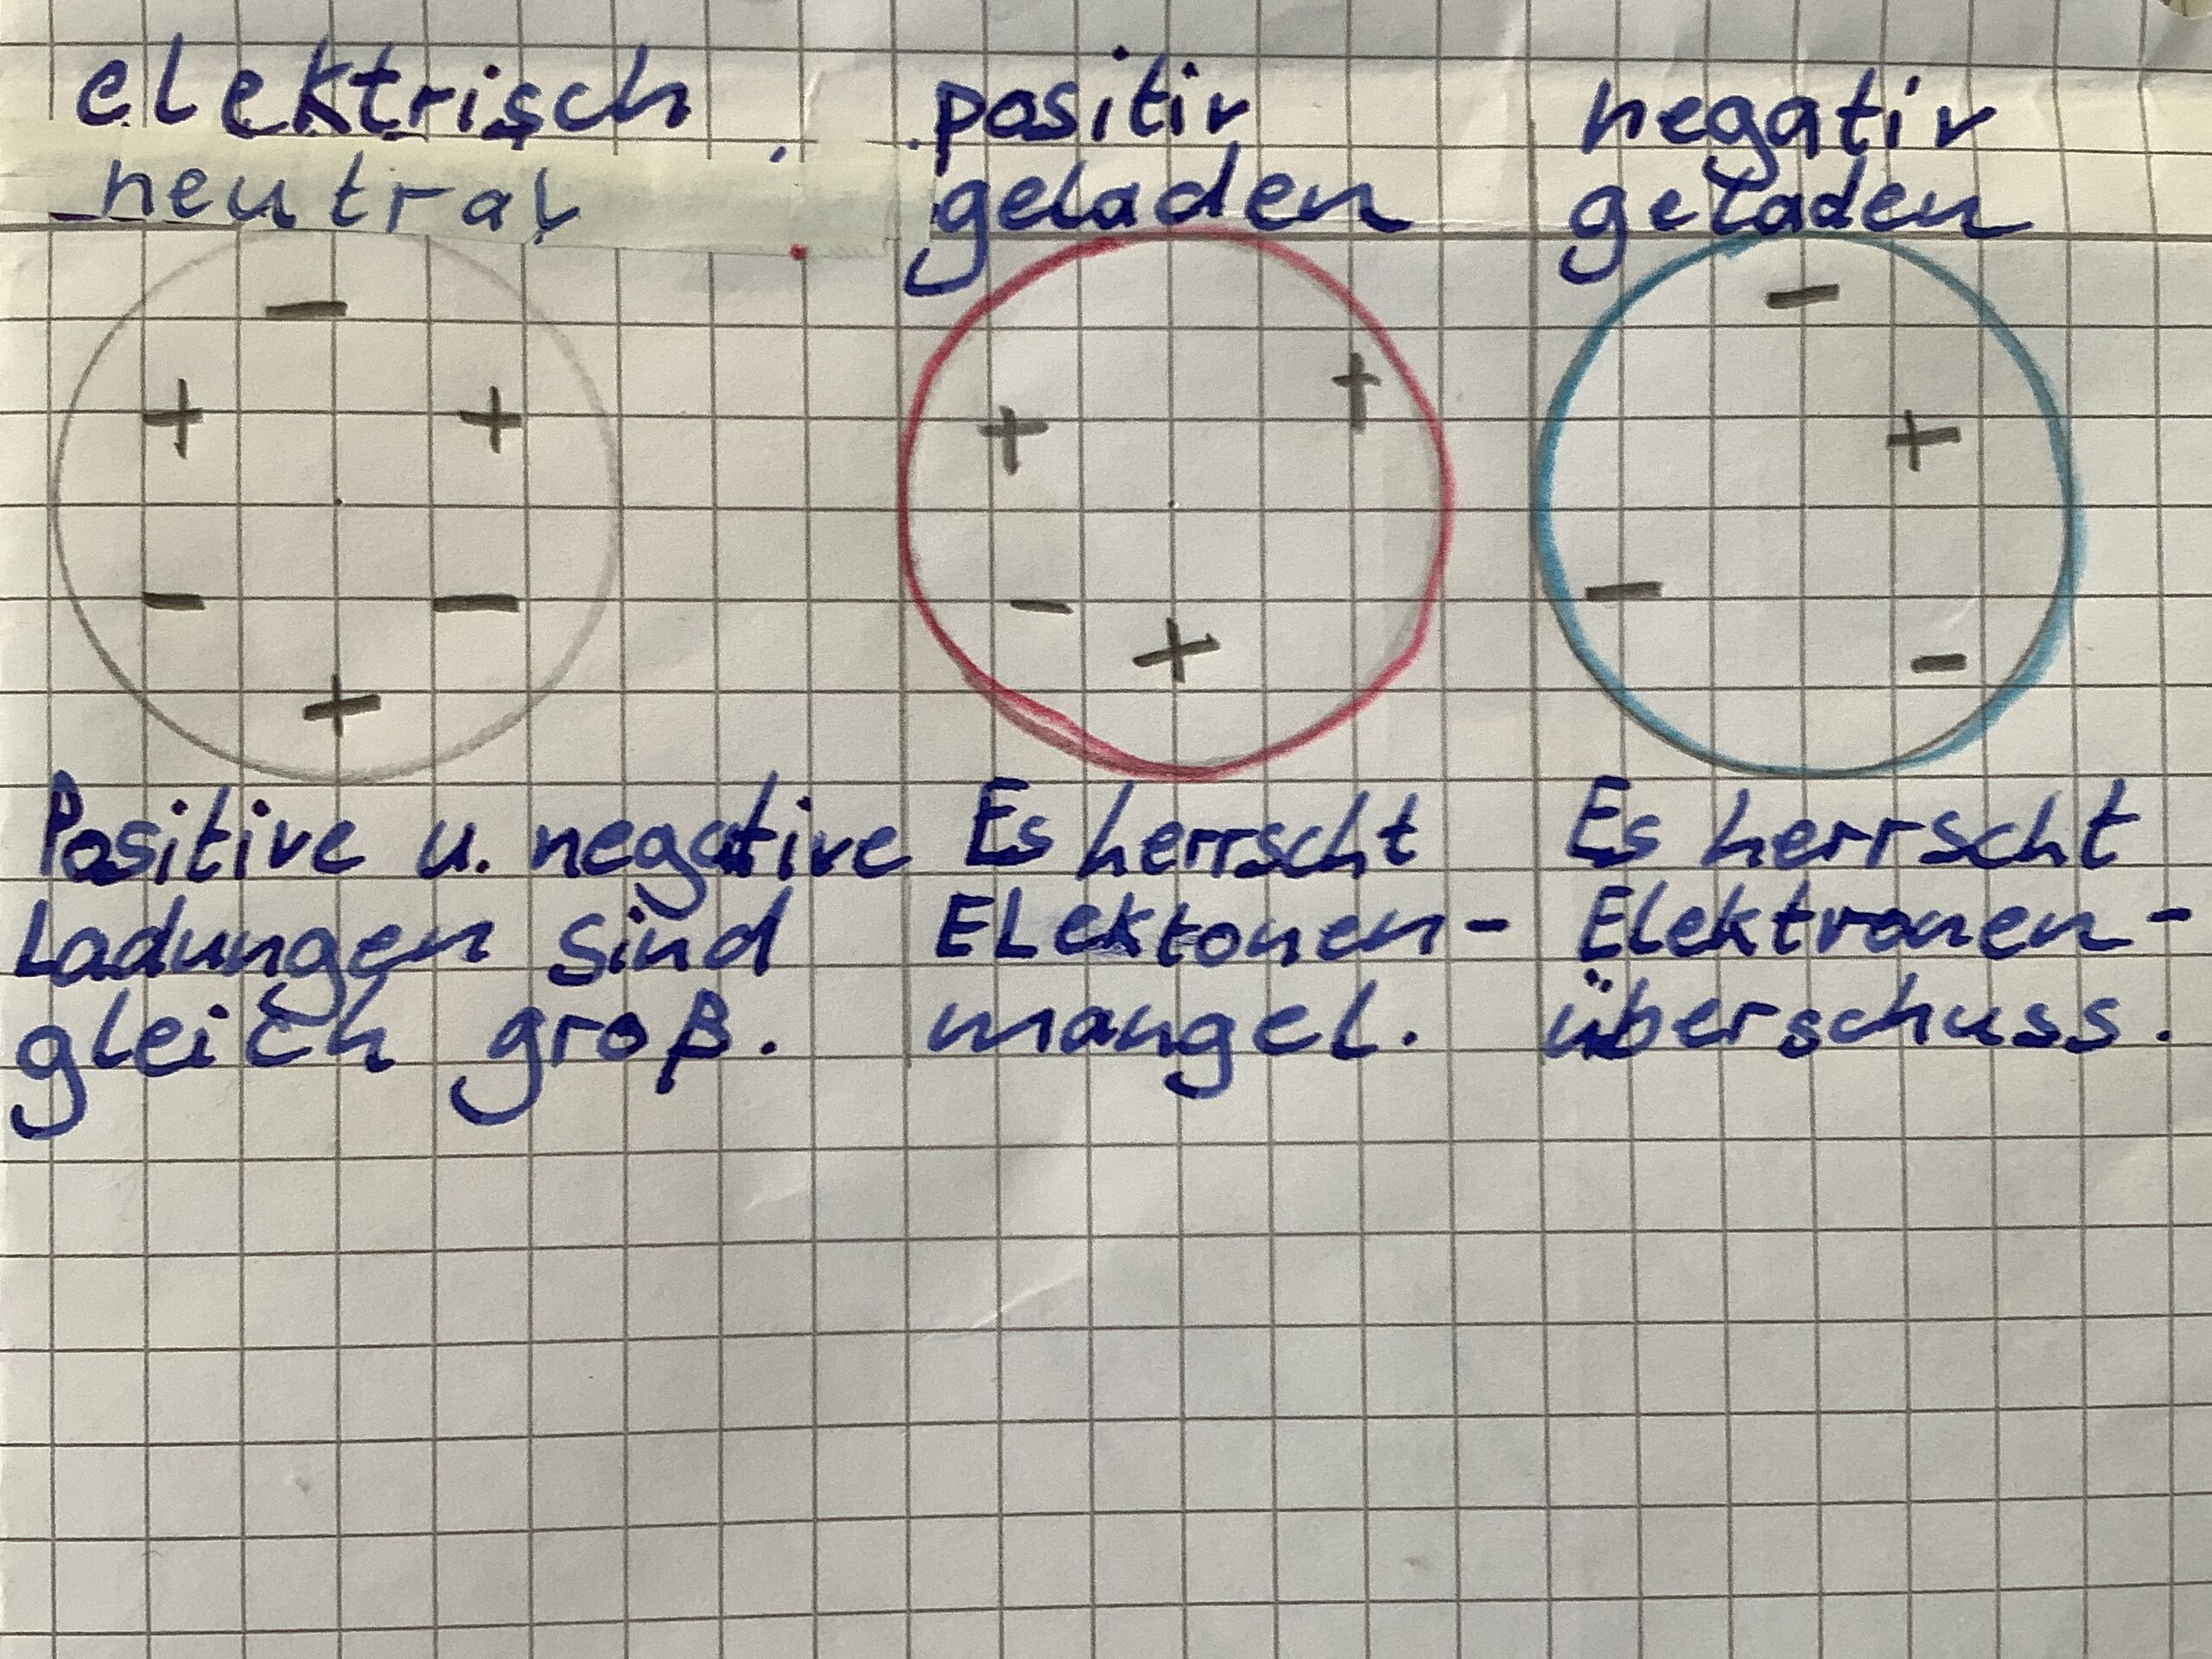 elektrisch
neutral
positiv
geladen
negativ
geladen
−
+ +
− −
+
+ +
−
+
−
+
−
−
Positive u. negative
Ladungen sind
gleich groß.
Es herrscht
Elektonen-
mangel.
Es herrscht
Elektronen-
überschuss.